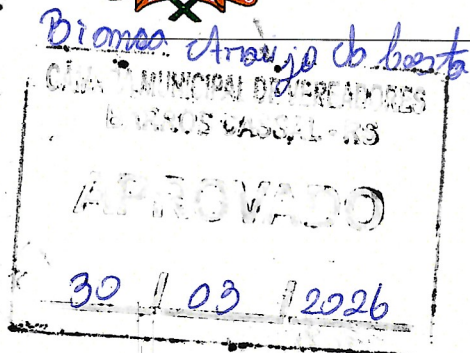 Araujo da Costa
CÂMARA MUNICIPAL DE VEREADORES
BARROS CASSAL - RS
APROVADO
30 / 03 / 2026